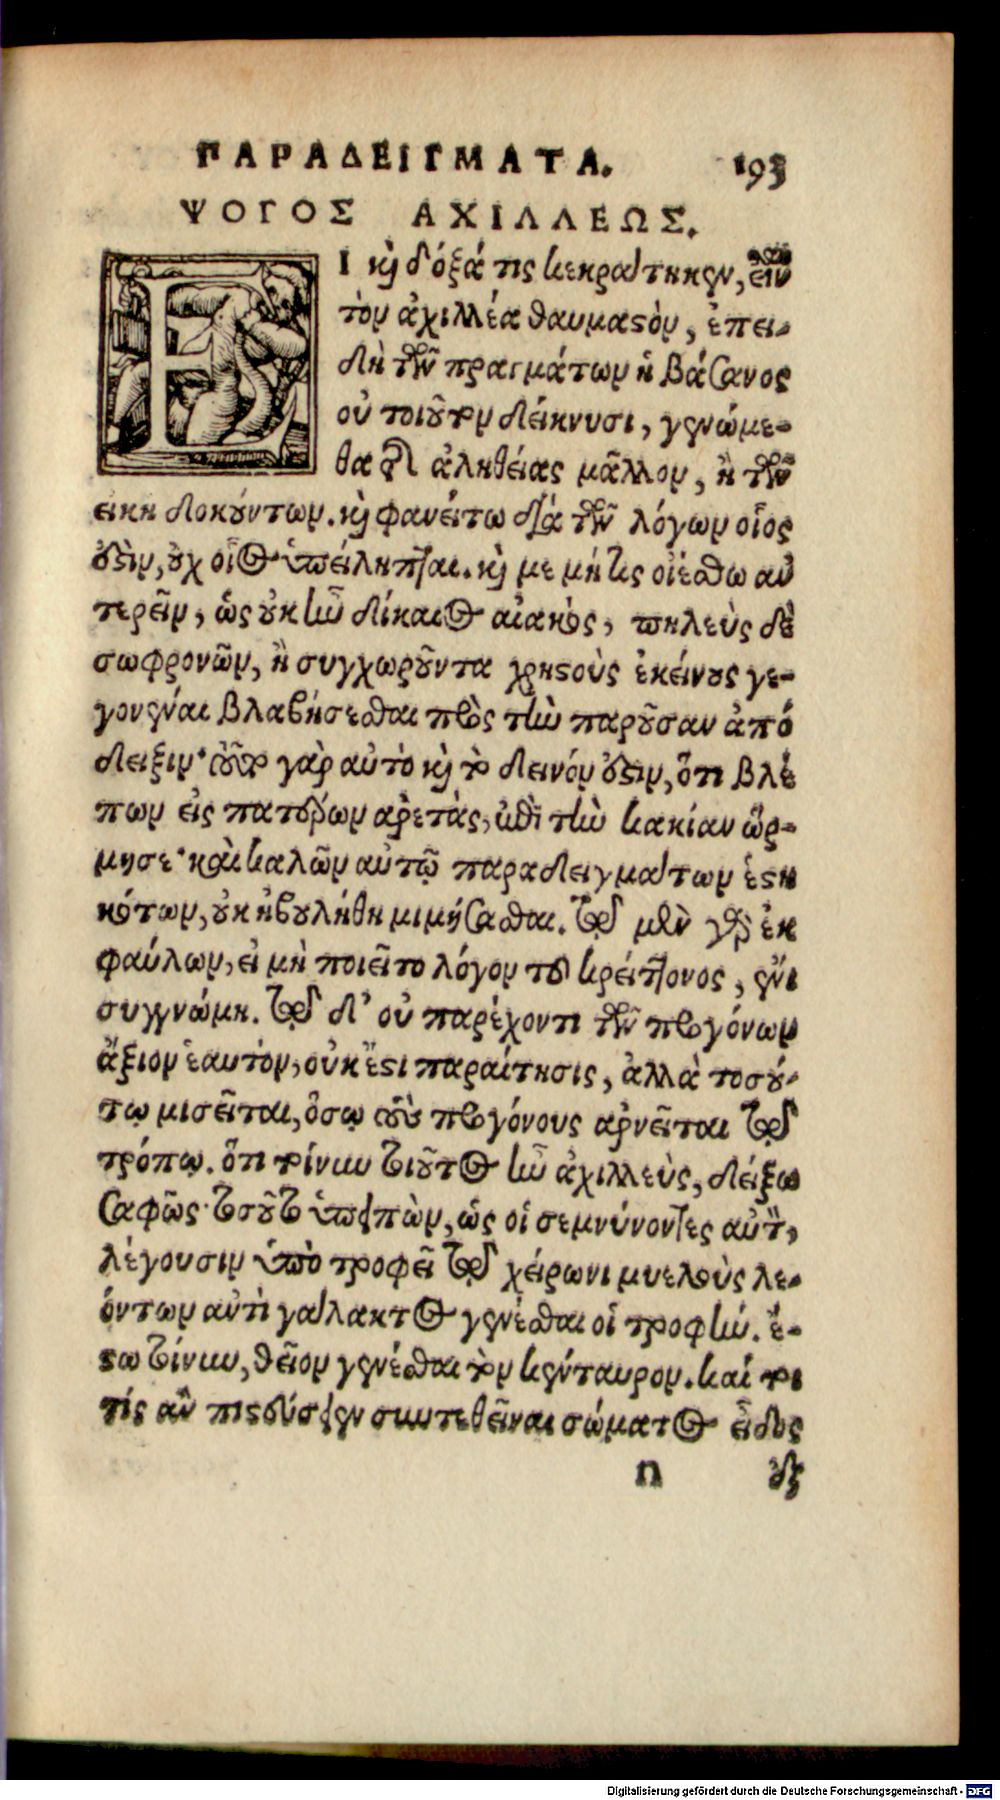 ΠΑΡΑΔΕΙΓΜΑΤΑ. 193
ΨΟΓΟΣ ΑΧΙΛΛΕΩΣ.
ΕΙ καὶ δόξά τις κεκράτηκεν, εἶναι
τὸν ἀχιλλέα θαυμαστὸν, ἐπει-
δὴ τῶν πραγμάτων ἡ βάσανος
οὐ τοιοῦτον δείκνυσι, γενώμε-
θα τῆς ἀληθείας μᾶλλον, ἢ τῶν
εικη δοκούντων. καὶ φανείτω διὰ τῶν λόγων οἷος
ἐστὶν, οὐχ οἷος ὑπείληπται. καί με μή τις οἰέσθω αὖ
τερεῖν, ὡς οὐκ ἦν δίκαιος αἰακὸς, πηλεὺς δὲ
σωφρονῶν, ἢ συγχωροῦντα χρηστοὺς ἐκείνους γε-
γονέναι βλαβήσεσθαι πρὸς τὴν παροῦσαν ἀπό
δειξιν· τοῦτο γὰρ αὐτὸ καὶ τὸ δεινόν ἐστιν, ὅτι βλέ
πων εἰς πατέρων ἀρετὰς, ἐπὶ τὴν κακίαν ὥρ-
μησε· καὶ καλῶν αὐτῷ παραδειγμάτων ἑστη
κότων, οὐκ ἠβουλήθη μιμήσασθαι. τῷ μὲν γὰρ ἐκ
φαύλων, εἰ μὴ ποιεῖτο λόγον τοῦ κρείττονος, ἔνι
συγγνώμη. τῷ δ' οὐ παρέχοντι τῶν προγόνων
ἄξιον ἑαυτὸν, οὐκ ἔστι παραίτησις, ἀλλὰ τοσού-
τῳ μισεῖται, ὅσῳ τοὺς προγόνους ἀρνεῖται τῷ
τρόπῳ. ὅτι τοίνυν τοιοῦτος ἦν ἀχιλλεὺς, δείξω
σαφῶς· τοσοῦτο ὑπειπὼν, ὡς οἱ σεμνύνοντες αὐτὸν,
λέγουσιν ὑπὸ τροφεῖ τῷ χείρωνι μυελοὺς λε-
όντων αὐτὶ γάλακτος γενέσθαι οἱ τροφήν. ἔ-
στω τοίνυν, θεῖον γενέσθαι τὸν κένταυρον. καί τοι
τίς ἂν πιστεύσειεν συντεθεῖναι σώματος εἶδος
n ἐξ